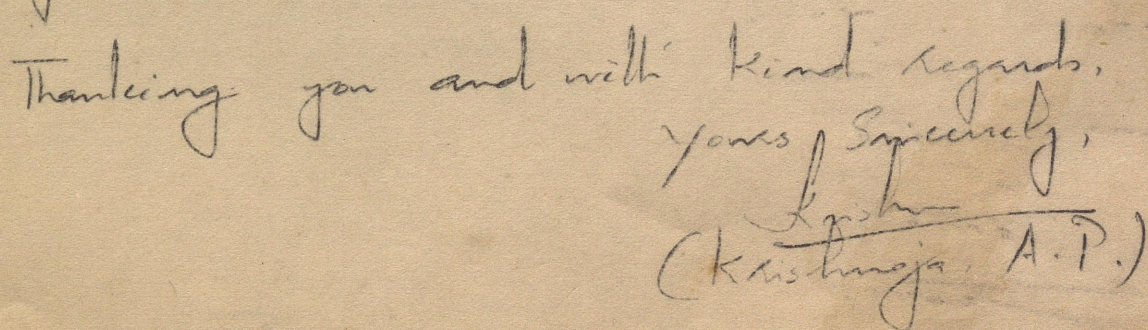 Thanking you and with kind regards,
Yours Sincerely,
Krishna
(Krishnaja. A.P.)